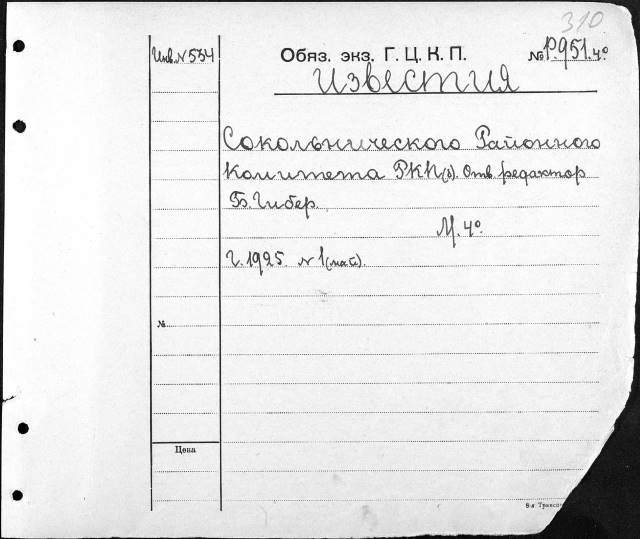 310
Инв. N 534
Обяз. экз. Г. Ц. К. П.
№ Р.951.4º
Известия
Сокольнического Районного
Комитета РКП(б). Отв. редактор
Б. Гибер.
М. 4º.
Г. 1925. N 1 (май).
№
Цена
8-я